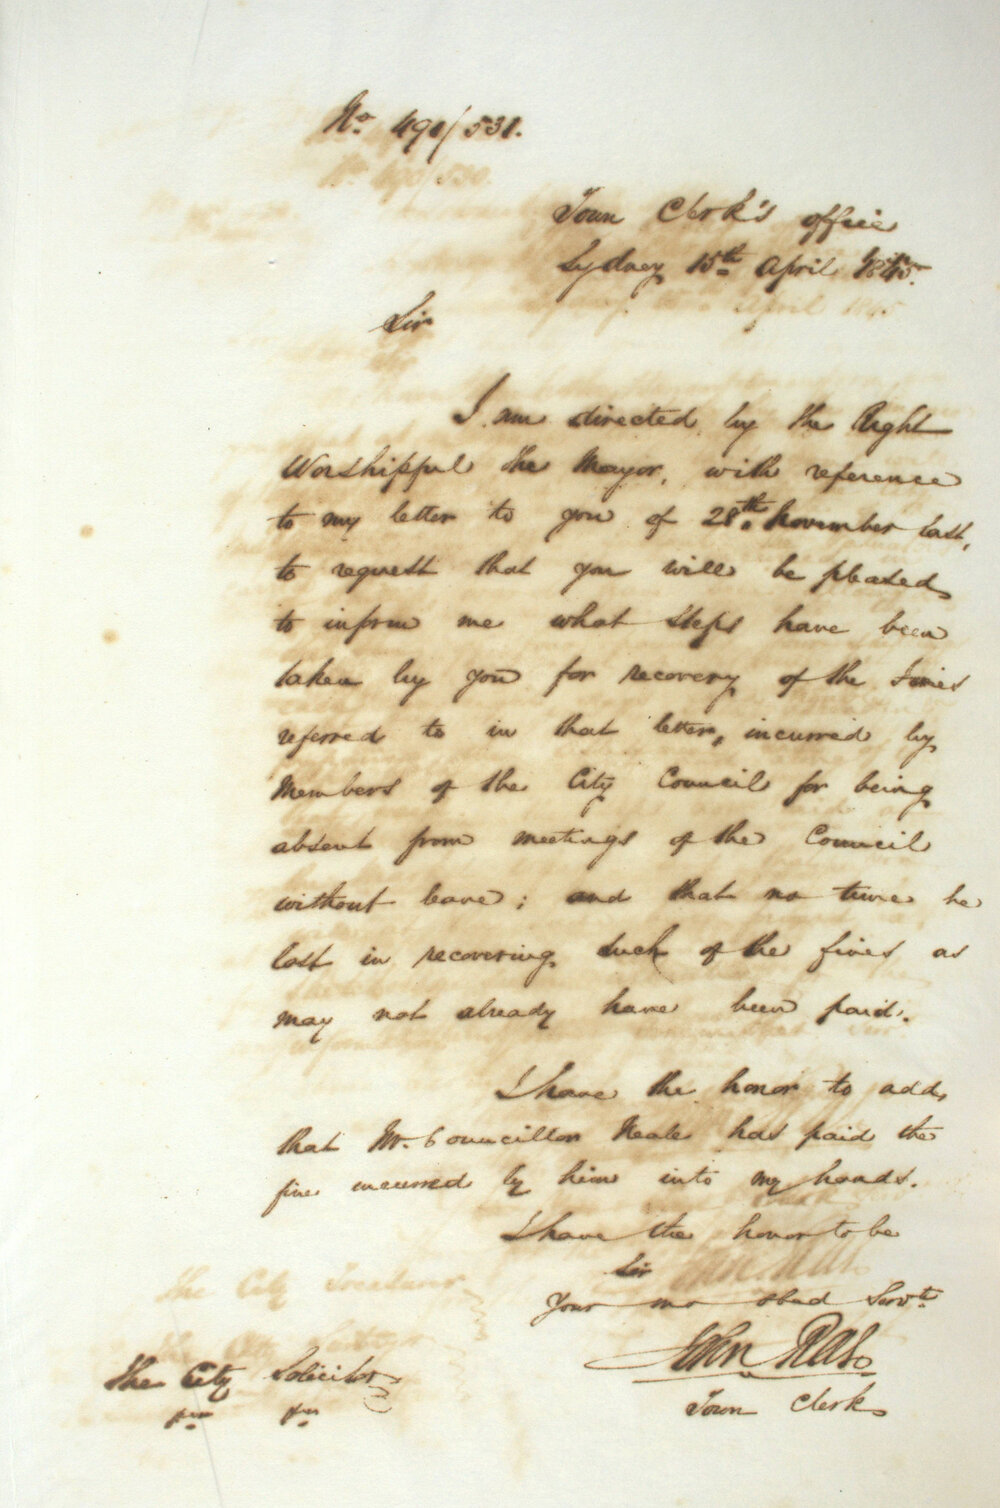 No. 491/531.
Town Clerk's office
Sydney 15th April 1845.
Sir
I am directed by the Right
Worshipful the Mayor, with reference
to my letter to you of 28th November last,
to request that you will be pleased
to inform me what steps have been
taken by you for recovery of the fines
referred to in that letter, incurred by
Members of the City Council for being
absent from meetings of the Council
without leave; and that no time be
lost in recovering such of the fines as
may not already have been paid.
I have the honor to add
that Mr. Councillor Neale has paid the
fine incurred by him into my hands.
I have the honor to be
Sir
Your mo obed Servt
John Rae
Town Clerk
The City Solicitor